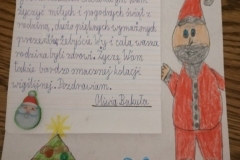 życzyć miłych i pogodnych świąt z
rodziną, dużo pięknych wymarzonych
prezentów. Żebyście Wy i cała wasza
rodzina byli zdrowi. Życzę Wam
także bardzo smacznej kolacji
wigilijnej. Pozdrawiam.